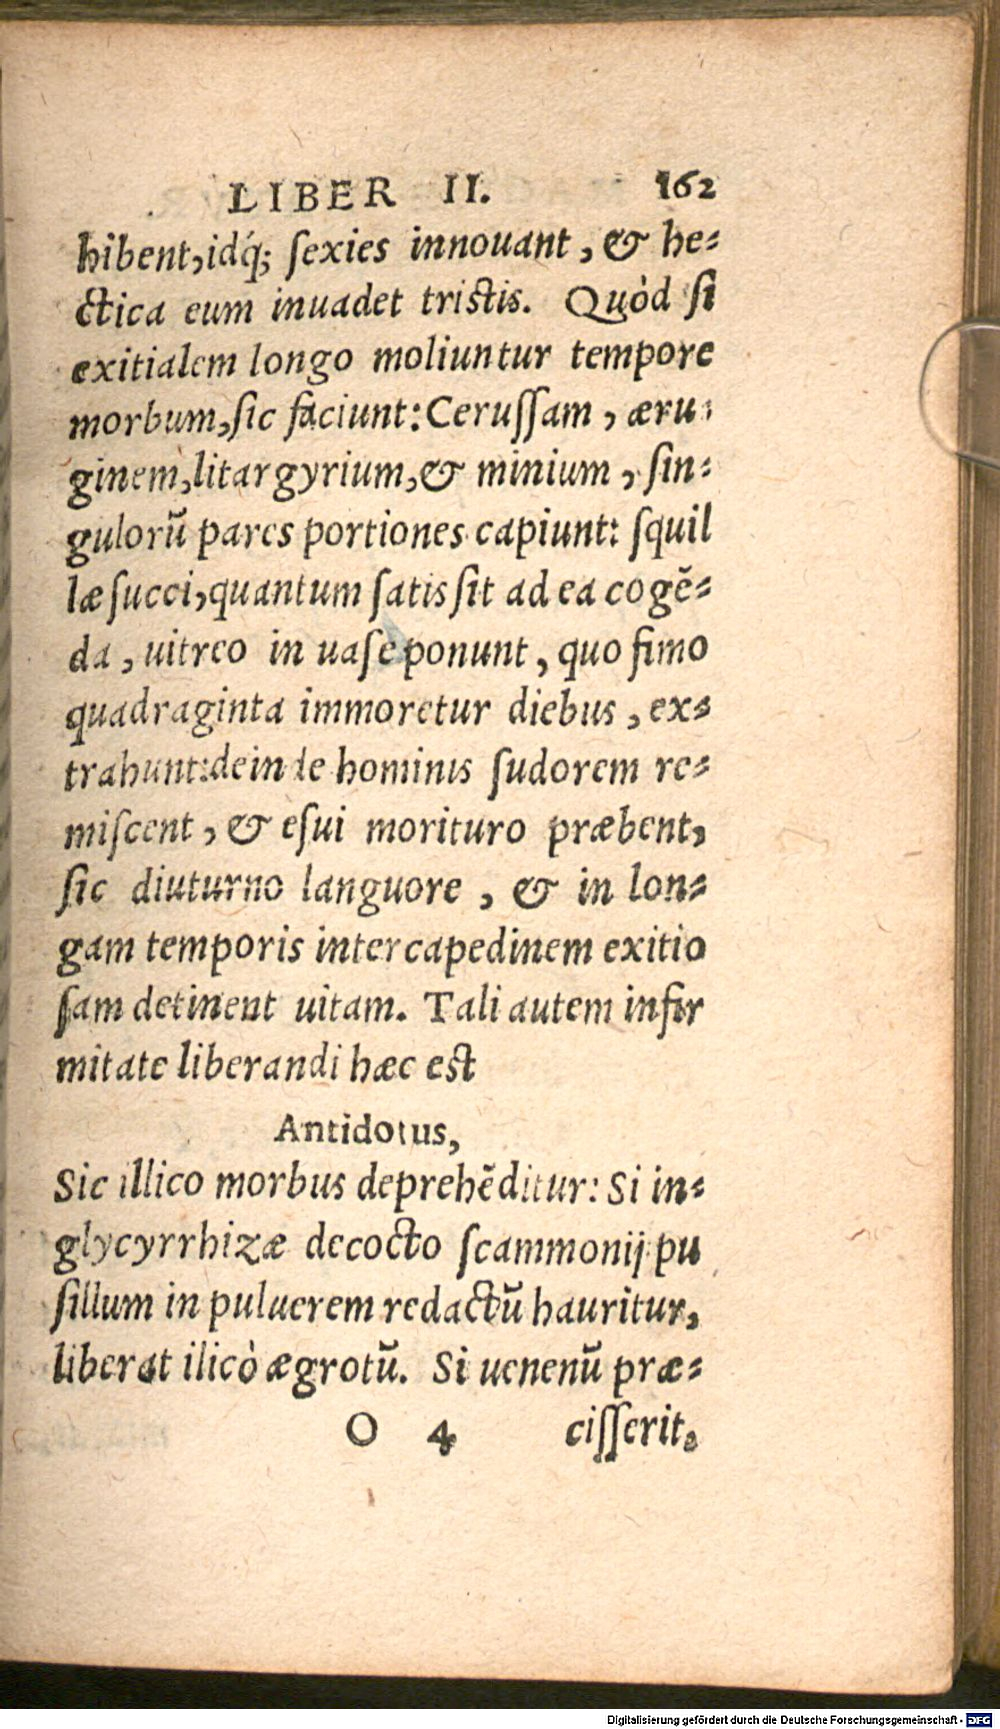 LIBER II. 162
hibent, idq́; ſexies innouant, & he-
ctica eum inuadet tristis. Quòd ſi
exitialem longo moliuntur tempore
morbum, ſic faciunt: Ceruſſam, æru-
ginem, litargyrium, & minium, ſin-
gulorū pares portiones capiunt: ſquil
læ ſucci, quantum ſatis ſit ad ea cogē-
da, uitreo in uaſe ponunt, quo fimo
quadraginta immoretur diebus, ex-
trahunt: deinde hominis ſudorem re-
miſcent, & eſui morituro præbent,
ſic diuturno languore, & in lon-
gam temporis intercapedinem exitio
ſam detinent uitam. Tali autem infir
mitate liberandi hæc est
Antidotus,
Sic illico morbus deprehēditur: Si in-
glycyrrhizæ decocto ſcammonij pu
ſillum in puluerem redactū hauritur,
liberat ilicò ægrotū. Si uenenū præ-
O 4 ciſſerit.
Digitalisierung gefördert durch die Deutsche Forschungsgemeinschaft - DFG